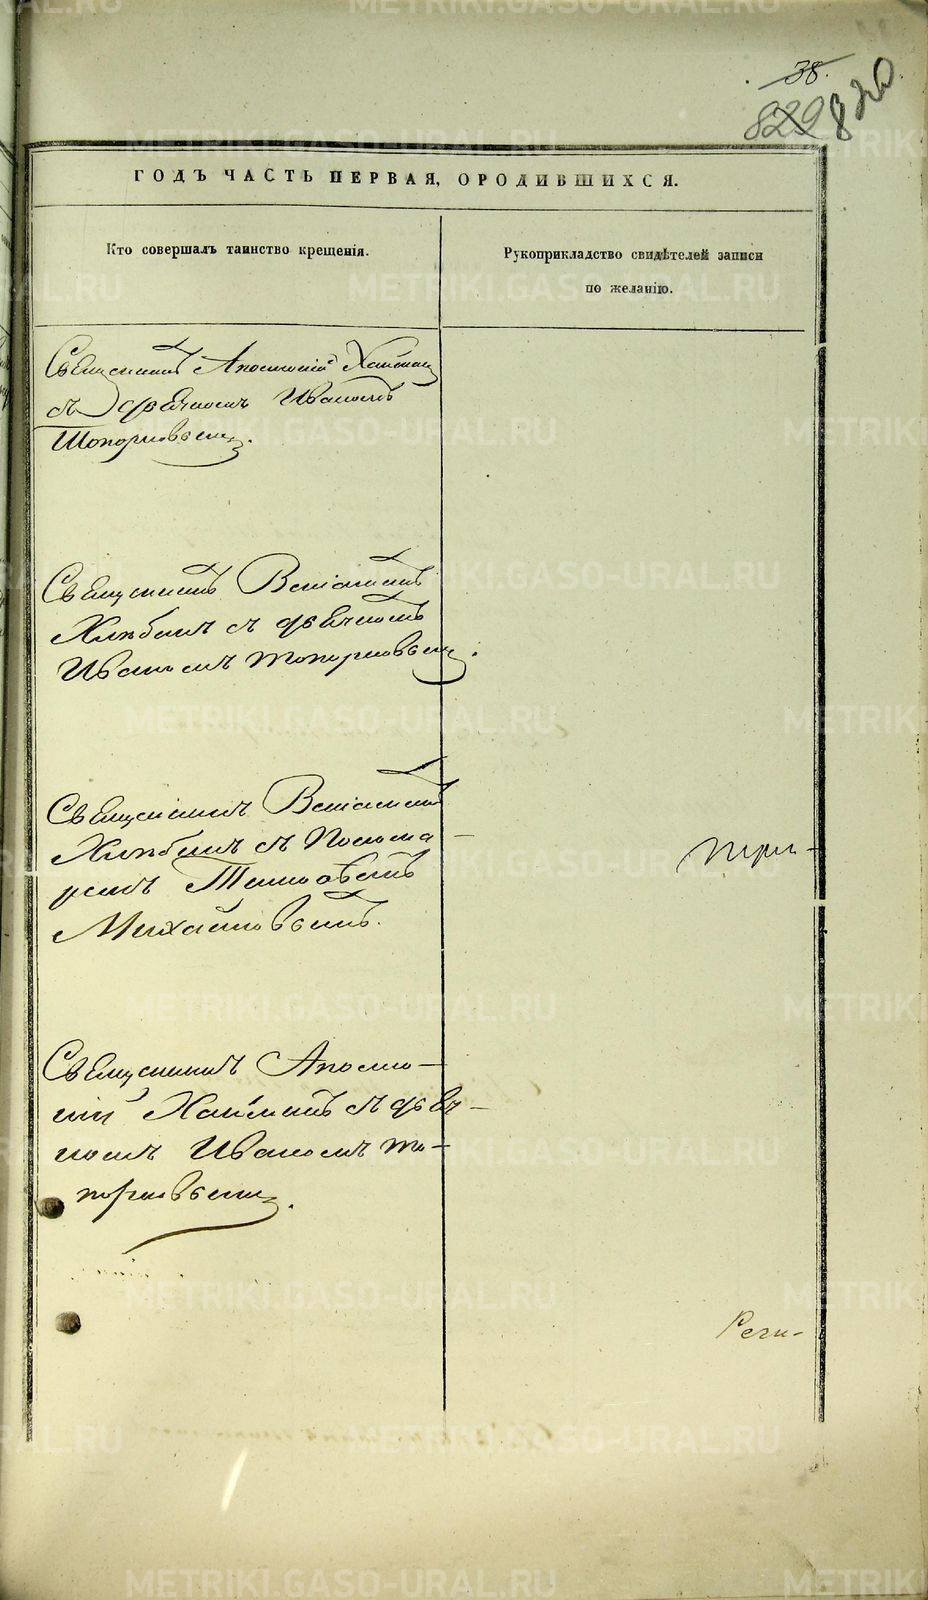 38.
829 820
ГОДЪ ЧАСТЬ ПЕРВАЯ, О РОДИВШИХСЯ.
Кто совершалъ таинство крещенія.
Рукоприкладство свидѣтелей записи
по желанію.
Священникъ
съ Іваномъ
Топорковымъ.
Священникъ Веніаминъ
Хлѣбинъ съ
Иваномъ Топорковымъ.
Священникъ Веніаминъ
Хлѣбинъ съ Понома-
ремъ
Михайловымъ.
Священникъ Аполло-
ній
Иваномъ То-
порковымъ.
Реги-
METRIKI.GASO-URAL.RU